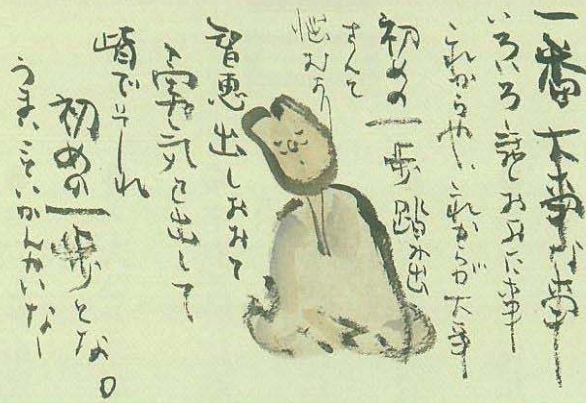 一番大事な事
いろいろ話おおた事
これからや、これからが大事
初めの一歩踏み出
さんで
悩むより
智恵出しおおて
勇気を出して
皆でそれ
初めの一歩とな。
うまいこといかんかいなー